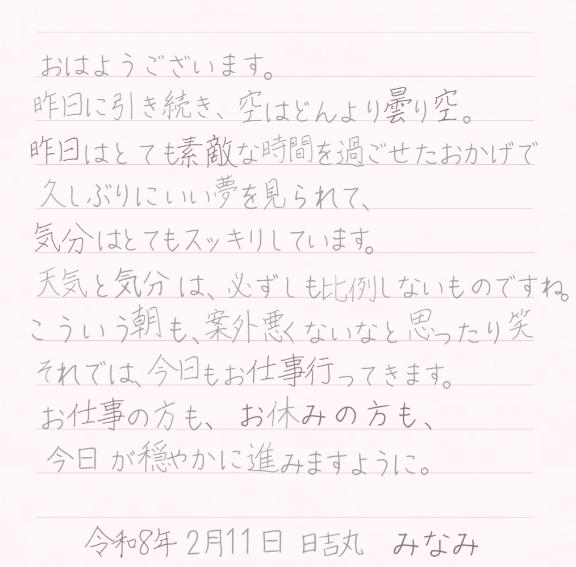 おはようございます。
昨日に引き続き、空はどんより曇り空。
昨日はとても素敵な時間を過ごせたおかげで
久しぶりにいい夢を見られて、
気分はとてもスッキリしています。
天気と気分は、必ずしも比例しないものですね。
こういう朝も、案外悪くないなと思ったり笑
それでは、今日もお仕事行ってきます。
お仕事の方も、お休みの方も、
今日が穏やかに進みますように。
令和8年2月11日 日吉丸 みなみ